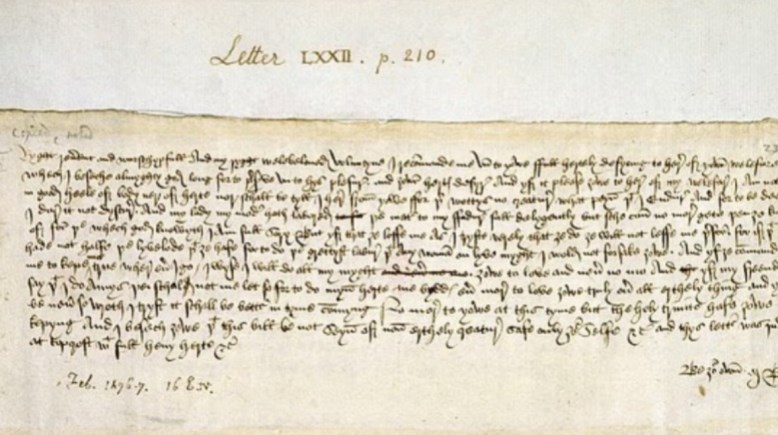 Letter LXXII. p. 210.
Ryght reverent and wurschypfull and my ryght welebeloved Voluntyne I recomande me un to yowe ffull hertely desyring to here of yowr welefare
whech I beseche almyghty god long for to preserve un to hys plesur and yowr hertys desyre And yf it please yowe to here of my welefare I am not
in good heele of body ner of herte nor schall be tyll I here from yowe ffor yer wottys no creatur what peyn yt I endur And for to be deede
I dur it not dyscur And my lady my moder hath labored ye mater to my ffadur full delygently but sche can no mor gete
of for ye whech god knowyth I am full sory But yf that ye loffe me as I tryste verely that ye do ye will not leffe me therfor for if yt ye
hade not halfe ye lyvelode yt ye hafe for to do ye grettyst labur yt any woman on lyve myght I wold not forsake yowe And yf ye comande
me to kepe me true wher ever I go I wyse I will do all my myght yowe to love and never no mo And yf my freendys
say yt I do amys yei schal not me let so for to do myn herte me byddys ever mor to love yowe truly over all erthely thing and yf
be never so wroth I tryst it schall be bettur in tyme comyng No mor to yowe at this tyme but the holy trinite hafe yowe
kepyng And I besech yowe yt this bill be not seyn of non erthely creatur safe only yowr selfe &c And thys lettur was
at topcroft wt full hevy herte &c
Be yowr own
Feb. 1476-7. 16 E IV.